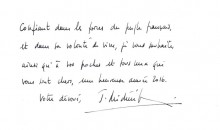 Confiant dans la force du peuple français,
et dans sa volonté de vivre, je vous souhaite
ainsi qu'à vos proches et tous ceux qui
vous sont chers, une heureuse année
Votre dévoué,